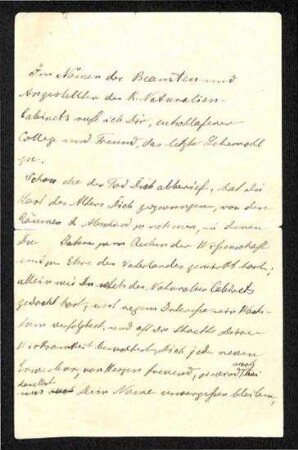 Im Namen der Beamten und
Angestellten des K. Naturalien-
Cabinets rufe ich Dir, entschlafener
College und Freund, das letzte Lebewohl
zu.
Schon ehe der Tod Dich abberief, hat die
Last des Alters Dich gezwungen, von den
Räumen Abschied zu nehmen, in denen
Du Jahre zum der Wissenschaft
und zur Ehre des Vaterlandes gewirkt hast;
allein wie Du stets des Naturalien Cabinets
gedacht hast, mit regem Interesse sein Wachs-
tum verfolgtest, und oft die Stätte Deiner
Wirksamkeit Dich jeder neuen
von Herzen freuend, so wird
Dein Name unvergessen bleiben,